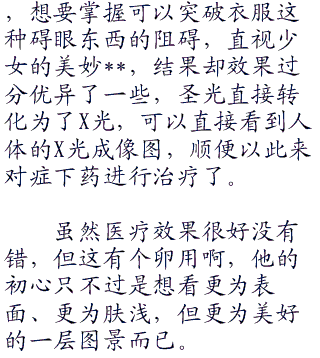 ，想要掌握可以突破衣服这
种碍眼东西的阻碍，直视少
女的美妙**，结果却效果过
分优异了一些，圣光直接转
化为了X光，可以直接看到人
体的X光成像图，顺便以此来
对症下药进行治疗了。
虽然医疗效果很好没有
错，但这有个卵用啊，他的
初心只不过是想看更为表
面、更为肤浅，但更为美好
的一层图景而已。